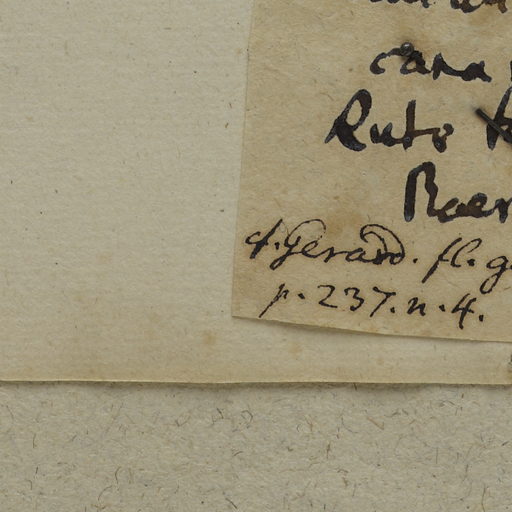 cana
Ruto
Baer
cf. Gerard. fl. g
p. 237. n. 4.